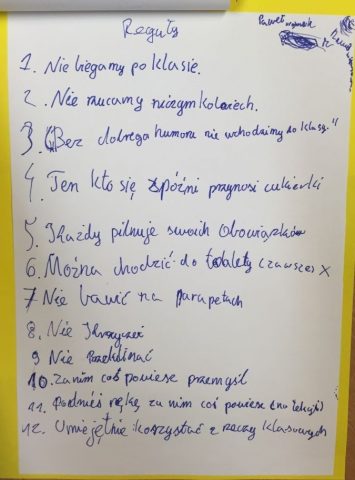 Reguły
Paweł
1. Nie biegamy po klasie.
2. Nie rzucamy niczym kolwiech.
3. "Bez dobrego humoru nie wchodzimy do klasy."
4. Ten kto się spóźni przynosi cukierki
5. Każdy pilnuje swoich obowiązków
6. Można chodzić do toalety (zawsze) X
7 Nie bawić na parapetach
8. Nie krzyczeć
9 Nie Przeklinać
10. Zanim coś powiesz przemyśl
11. Podnieś rękę za nim coś powiesz (na lekcji)
12. Umiejętnie korzystać z rzeczy klasowych